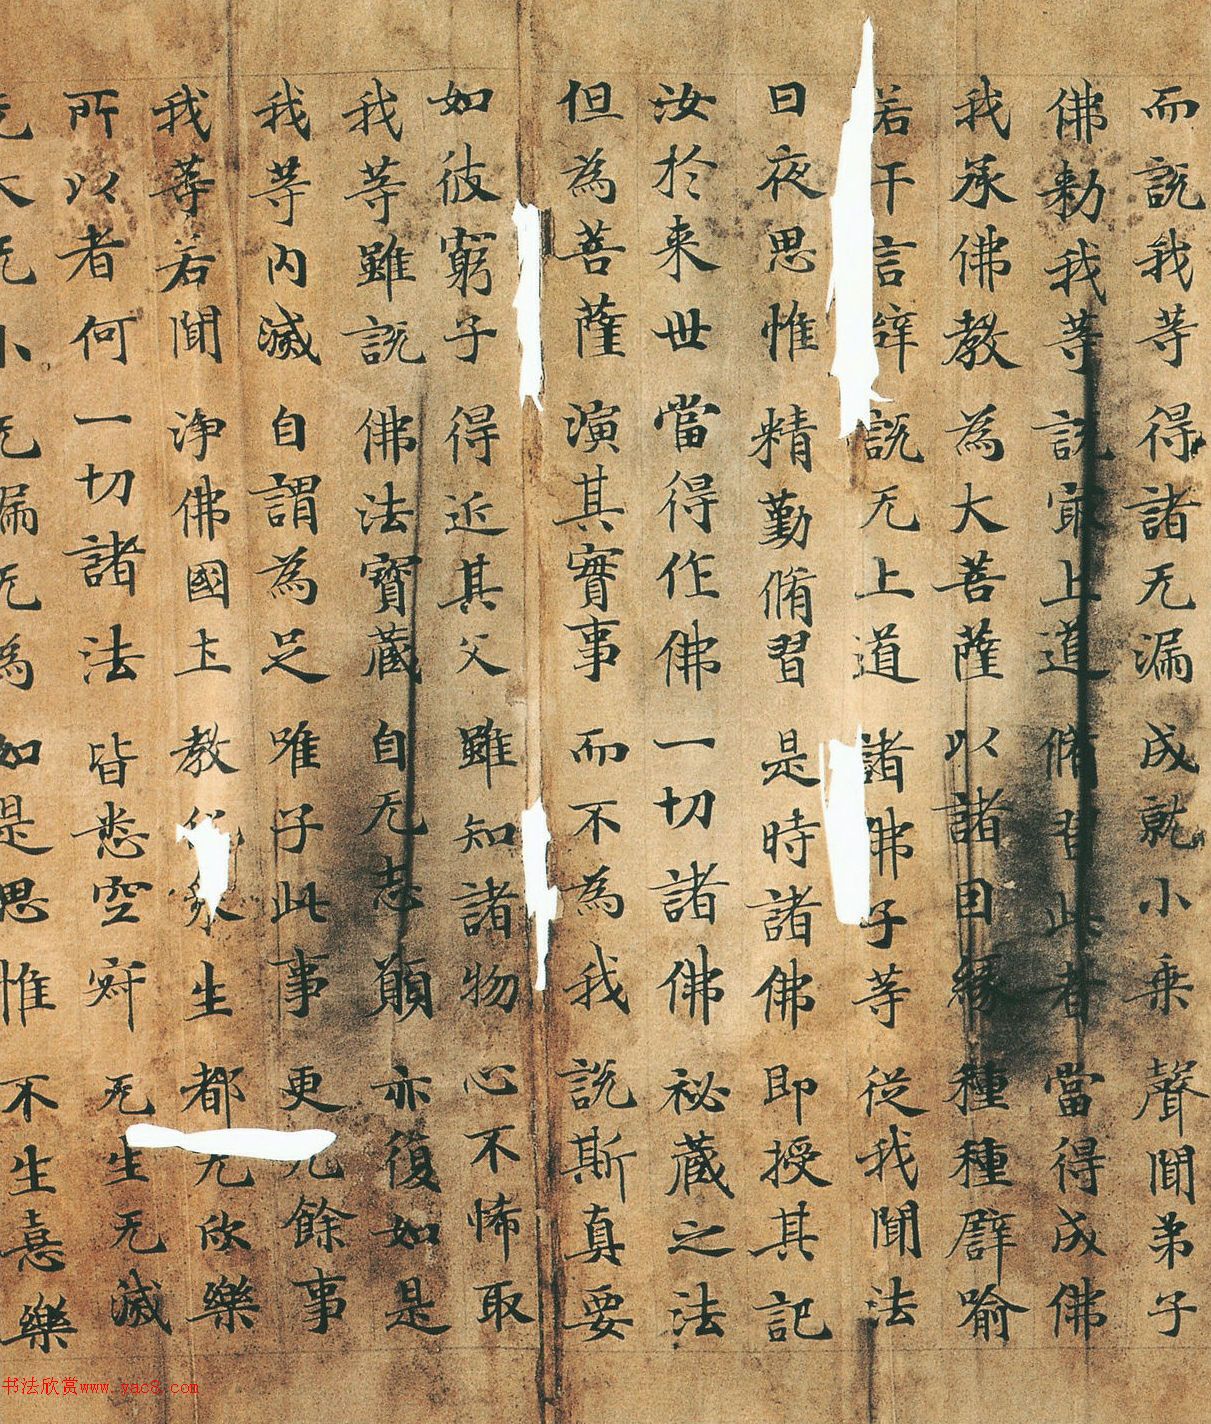 而說我等 得諸无漏 成就小乗 聲聞弟子
佛勑我等 說最上道 脩習此者 當得成佛
我承佛教 為大菩薩 以諸因縁 種種譬喻
若干言辝 說无上道 諸佛子等 從我聞法
日夜思惟 精勤脩習 是時諸佛 即授其記
汝於来世 當得作佛 一切諸佛 祕蔵之法
但為菩薩 演其實事 而不為我 說斯真要
如彼窮子 得近其父 雖知諸物 心不怖取
我等雖說 佛法寶蔵 自无志願 亦復如是
我等内滅 自謂為足 唯子此事 更无餘事
我等若聞 淨佛國土 教 生 都无欣樂
所以者何 一切諸法 皆悉空 无生无滅
无大无小 无漏无為 如是思惟 不生憙樂
书法欣赏www.yac8.com